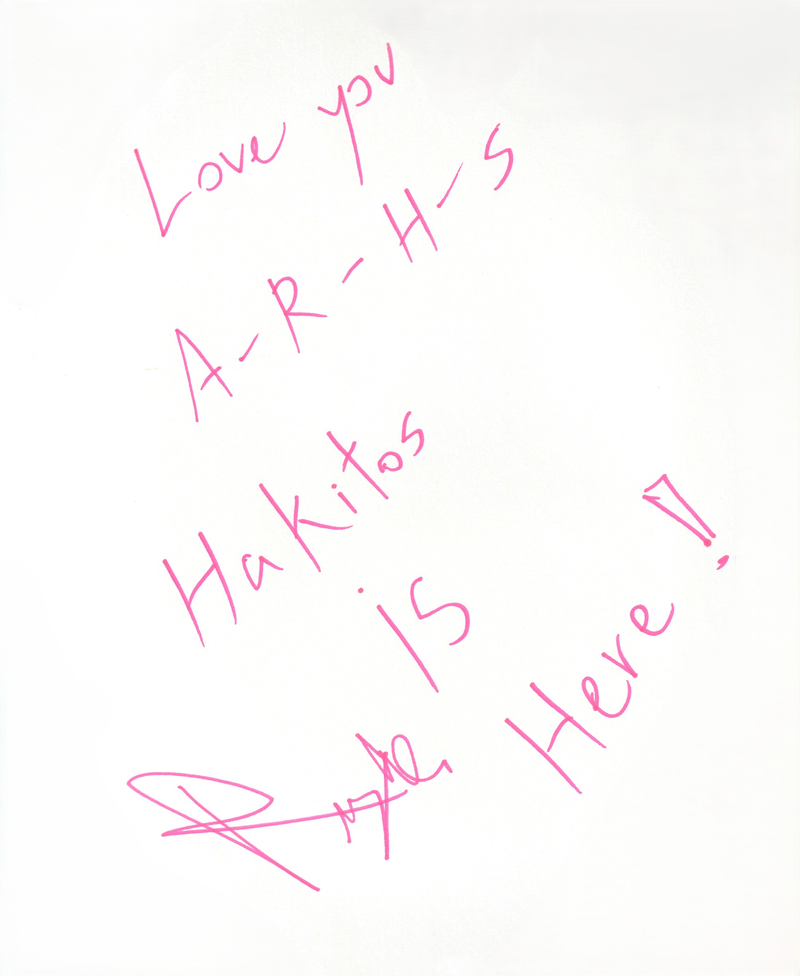 Love you
A-R-H-S
Hakitos
is
Here!